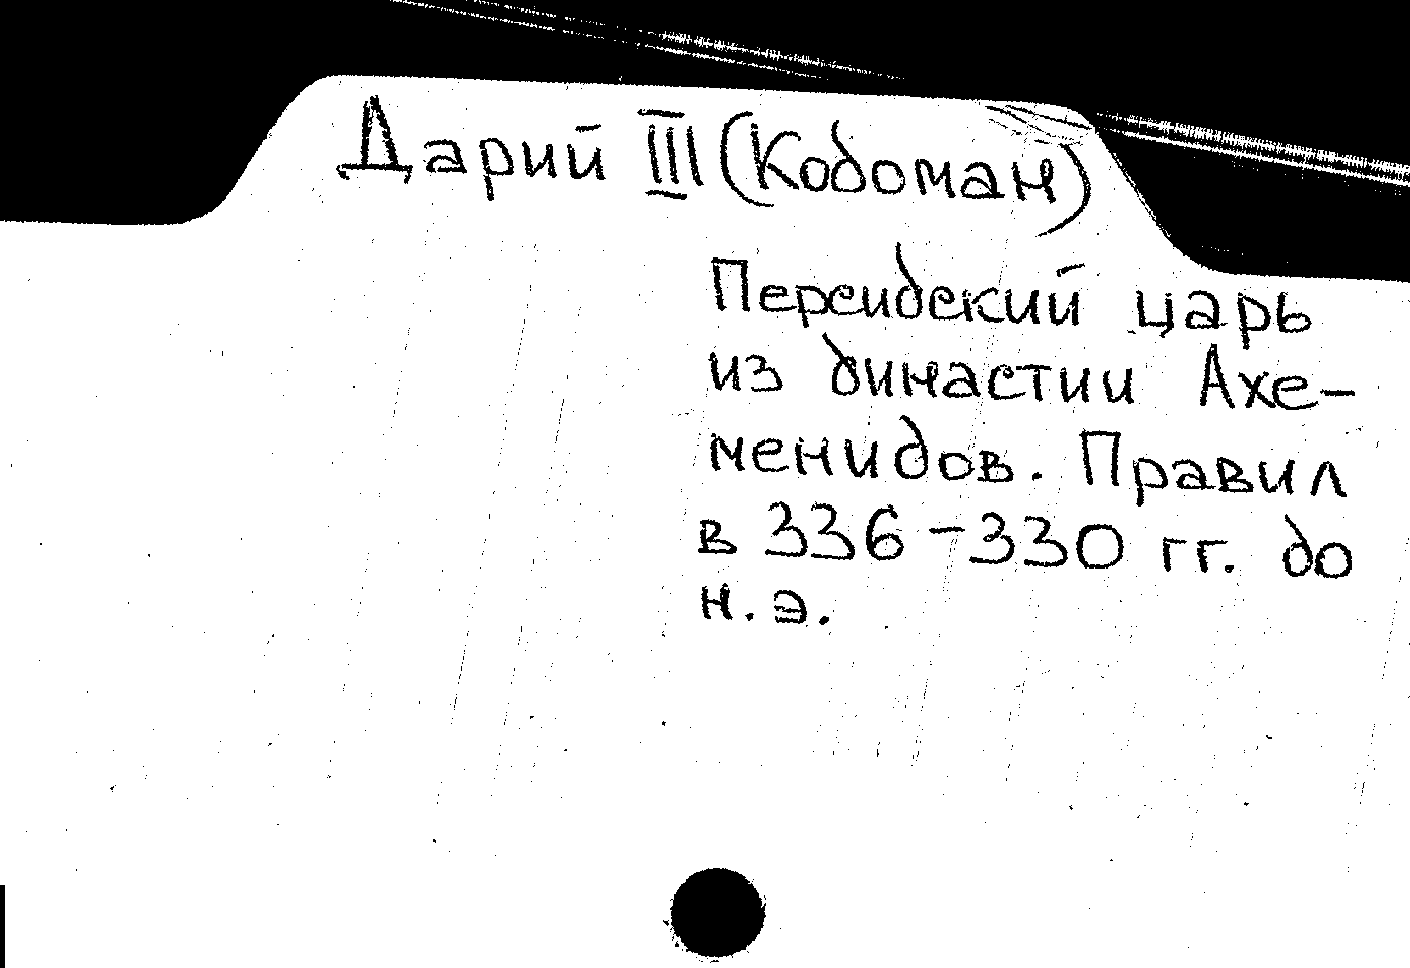 Дарий III (Кодоман)
Персидский царь
из династии Ахе-
менидов. Правил
в 336-330 гг. до
н.э.